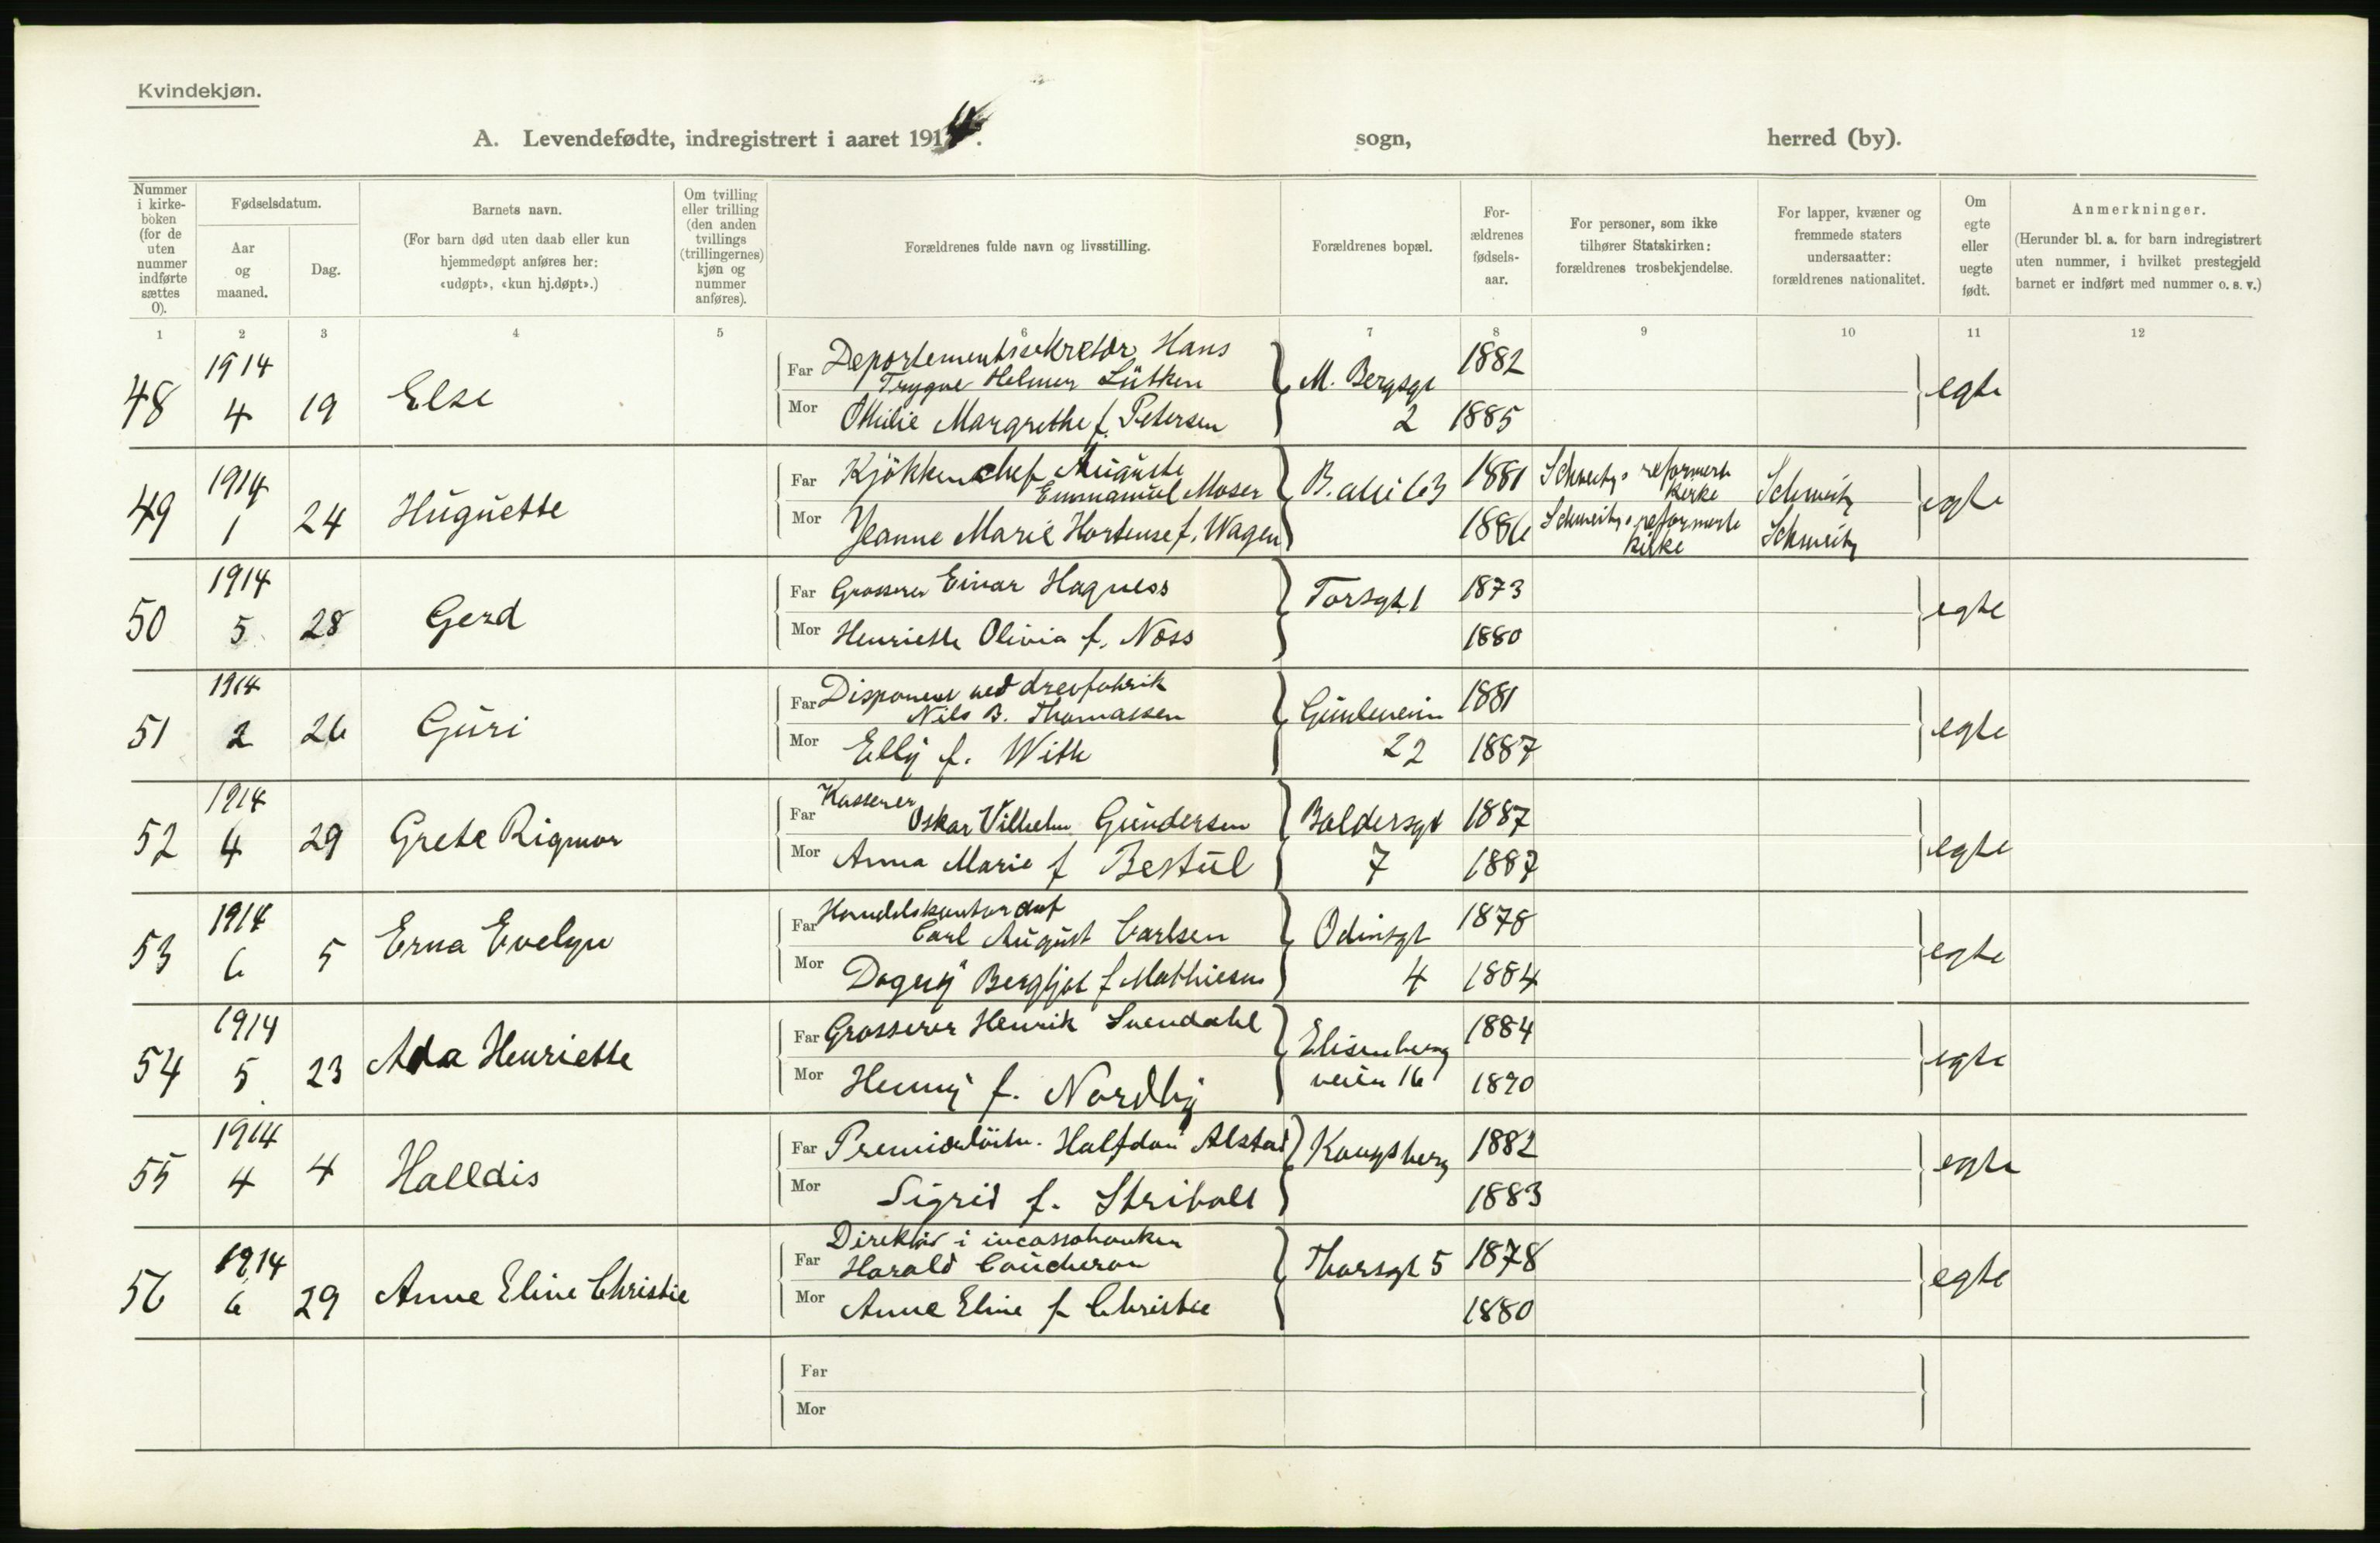 Kvindekjøn.
A. Levendefødte, indregistrert i aaret 1914. sogn, herred (by).
Nummer i kirke-boken (for de uten nummer indførte sættes 0).
Fødselsdatum.
Aar og maaned.
Dag.
Barnets navn.
(For barn død uten daab eller kun hjemmedøpt anføres her: «udøpt», «kun hj.døpt».)
Om tvilling eller trilling (den anden tvillings (trillingernes) kjøn og nummer anføres).
Forældrenes fulde navn og livsstilling.
Forældrenes bopæl.
For-ældrenes fødsels-aar.
For personer, som ikke tilhører Statskirken: forældrenes trosbekjendelse.
For lapper, kvæner og fremmede staters undersaatter: forældrenes nationalitet.
Om egte eller uegte født.
Anmerkninger.
(Herunder bl. a. for barn indregistrert uten nummer, i hvilket prestegjeld barnet er indført med nummer o. s. v.)
1 2 3 4 5 6 7 8 9 10 11 12
48 1914 4 19 Else
Far Departementssekretær Hans
Trygve Helmer Lütken M. Bergsgt 1882 egte
Mor Ottilie Margrethe f. Petersen 2 1885
49 1914 1 24 Huguette
Far Kjøkkenchef Auguste
Emmanuel Moser B. alle 63 1881 Schweitz's reformerte kirke Schweitz egte
Mor Jeanne Marie Hortense f. Wagen 1886 Schweitz's reformerte kirke Schweitz
50 1914 5 28 Gerd
Far Grosserer Einar Hagness Torsgt 1 1873 egte
Mor Henriette Olivia f. Næss 1880
51 1914 2 26 Guri
Far Disponent ved
Nils B. Thomassen 1881 egte
Mor Elly f. With 22 1887
52 1914 4 29 Grete Rigmor
Far Kasserer
Oskar Vilhelm Gundersen Baldersgt 1887 egte
Mor Anna Marie f Bestul 7 1887
53 1914 6 5 Erna Evelyn
Far
Carl August Carlsen Odinsgt 1878 egte
Mor Dagny Bergljot f Mathiesen 4 1884
54 1914 5 23 Ada Henriette
Far Grosserer Henrik Svendahl Elisenberg 1884 egte
Mor Henny f. Nordby veien 16 1890
55 1914 4 4 Halldis
Far Premierløitn. Halfdan Alstad Kongsberg 1882 egte
Mor Sigrid f. Stribolt 1883
56 1914 6 29 Anne Eline Christie
Direktør i incassobanken
Far Harald Coucheron Thorsgt 5 1878 egte
Mor Anne Eline f Christie 1880
Far
Mor